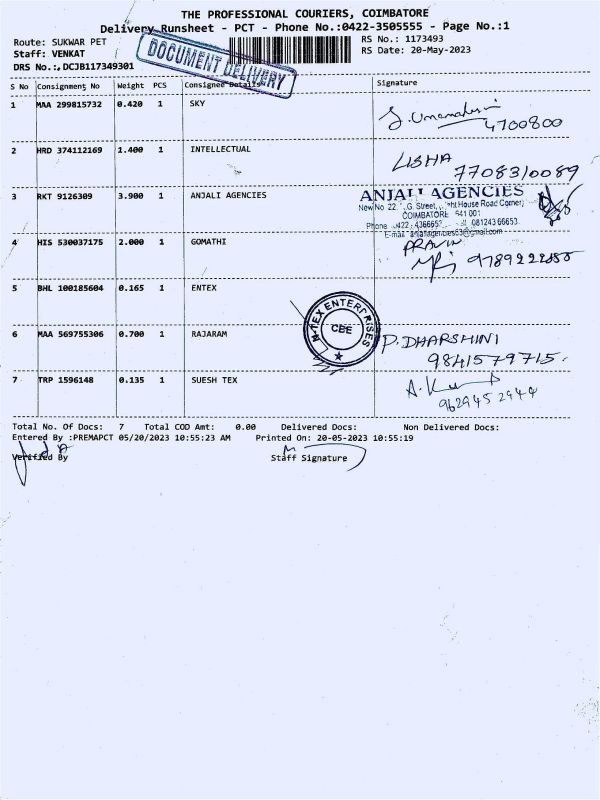 THE PROFESSIONAL COURIERS, COIMBATORE
Delivery Runsheet - PCT - Phone No.:0422-3505555 - Page No.:1
Route: SUKWAR PET
RS No.: 1173493
Staff: VENKAT
RS Date: 20-May-2023
DRS No.:,DCJB117349301
DOCUMENT DELIVERY
S No Consignment No Weight PCS Consignee Details Signature
1 MAA 299815732 0.420 1 SKY
4700800
2 HRD 374112169 1.400 1 INTELLECTUAL
LISHA
7708310089
3 RKT 9126309 3.900 1 ANJALI AGENCIES
ANJALI AGENCIES
New No 22. G. Street, House Road Corner,
COIMBATORE 641 001
Phone 0422
4 HIS 530037175 2.000 1 GOMATHI
PRAVIN
5 BHL 100185604 0.165 1 ENTEX
M-TEX ENTERPRISES
CBE
6 MAA 569755306 0.700 1 RAJARAM
P. DHARSHINI
9841579715.
7 TRP 1596148 0.135 1 SUESH TEX
9629452944
Total No. Of Docs: 7 Total COD Amt: 0.00 Delivered Docs: Non Delivered Docs:
Entered By :PREMAPCT 05/20/2023 10:55:23 AM Printed On: 20-05-2023 10:55:19
Verified By
Staff Signature